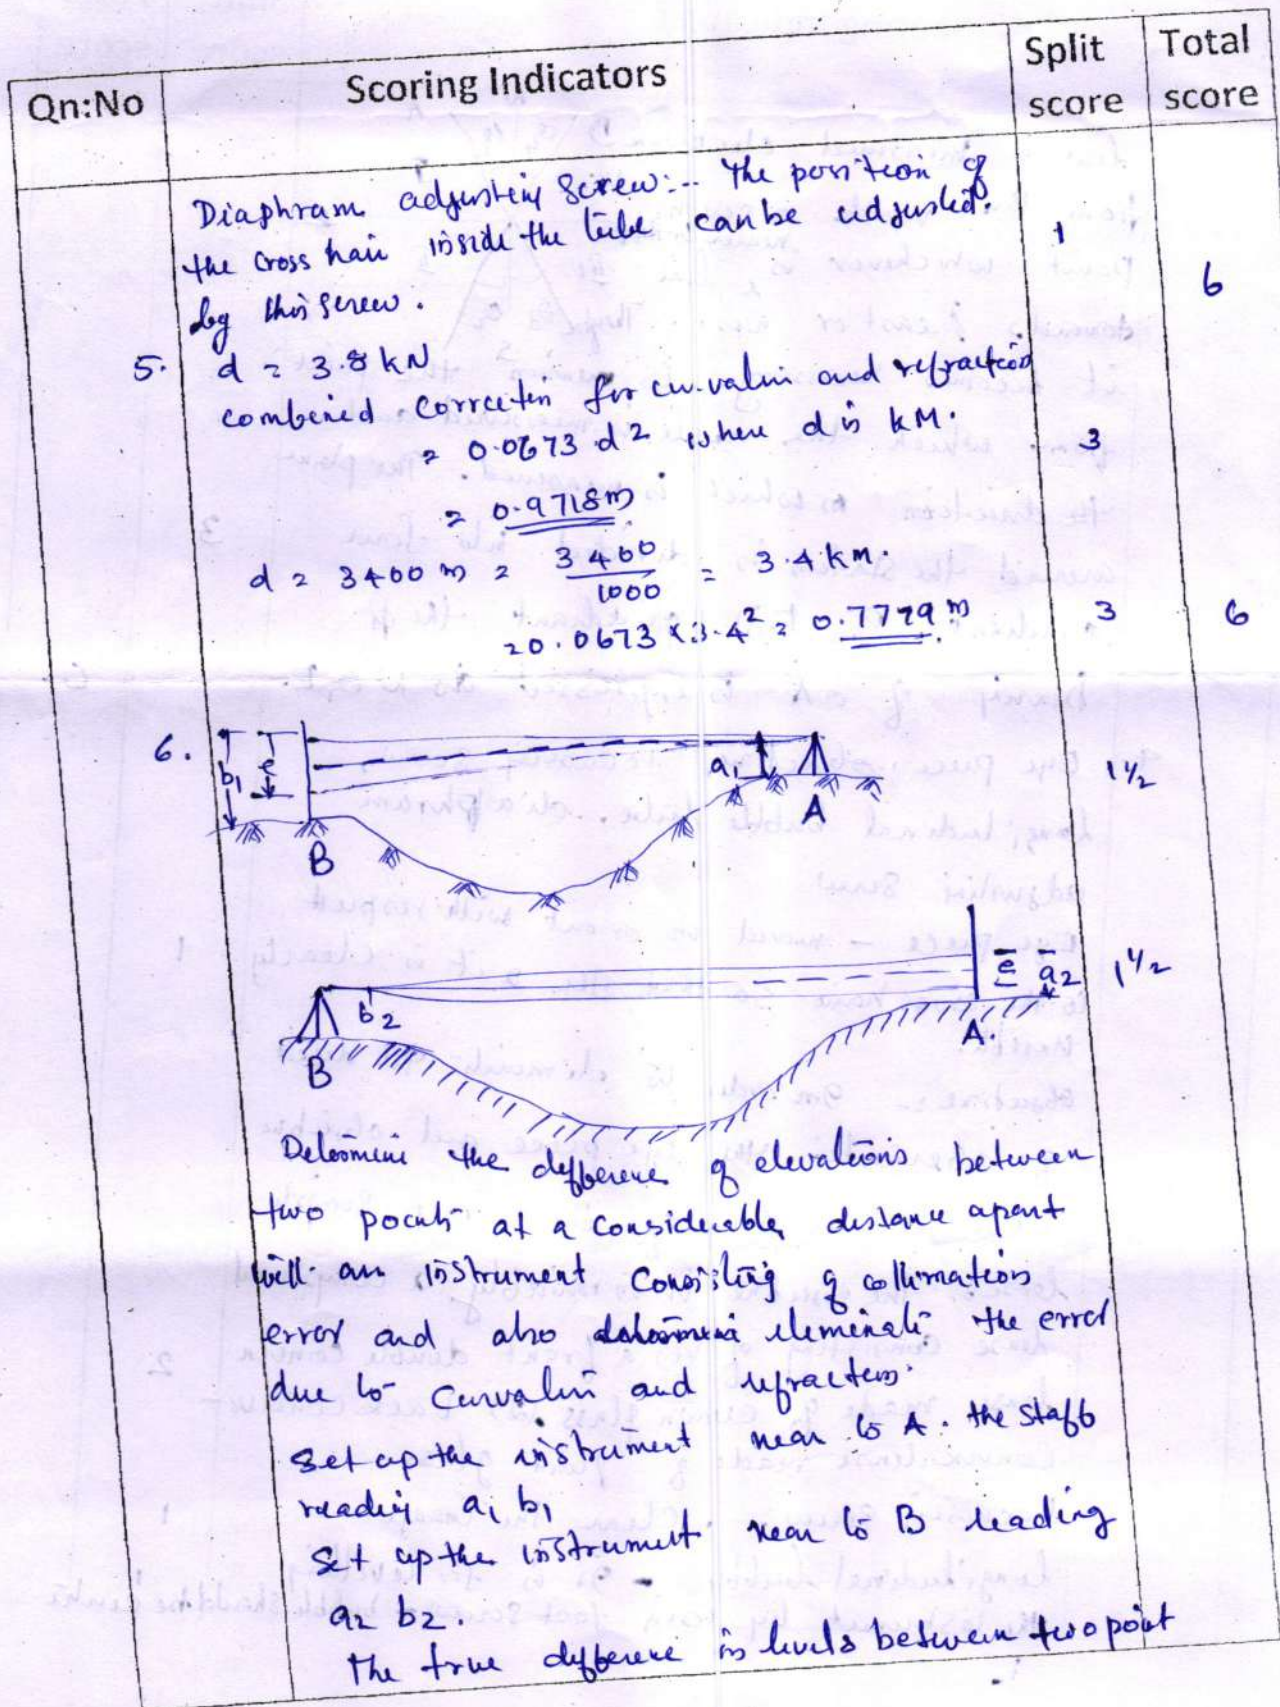 Qn:No Scoring Indicators Split score Total score
Diaphram adjusting Screw:- The position of
the cross hair inside the tube can be adjusted. 1
by this screw. 6
5. d = 3.8 kN
combined correction for curvature and refraction
= 0.0673 d2 where d is kM. 3
= 0.9718m
d = 3400 m = 3400/1000 = 3.4 km.
= 0.0673 x 3.4² = 0.7779 m 3 6
6. b1 e a1 1 1/2
B A
b2 e a2 1 1/2
B A.
Determine the difference of elevations between
two points at a considerable distance apart
with an instrument consisting of collimation
error and also eleminate the error
due to Curvature and refraction.
Set up the instrument near to A. the staff
reading a1 b1
Set up the instrument near to B reading
a2 b2.
The true difference in levels between two point